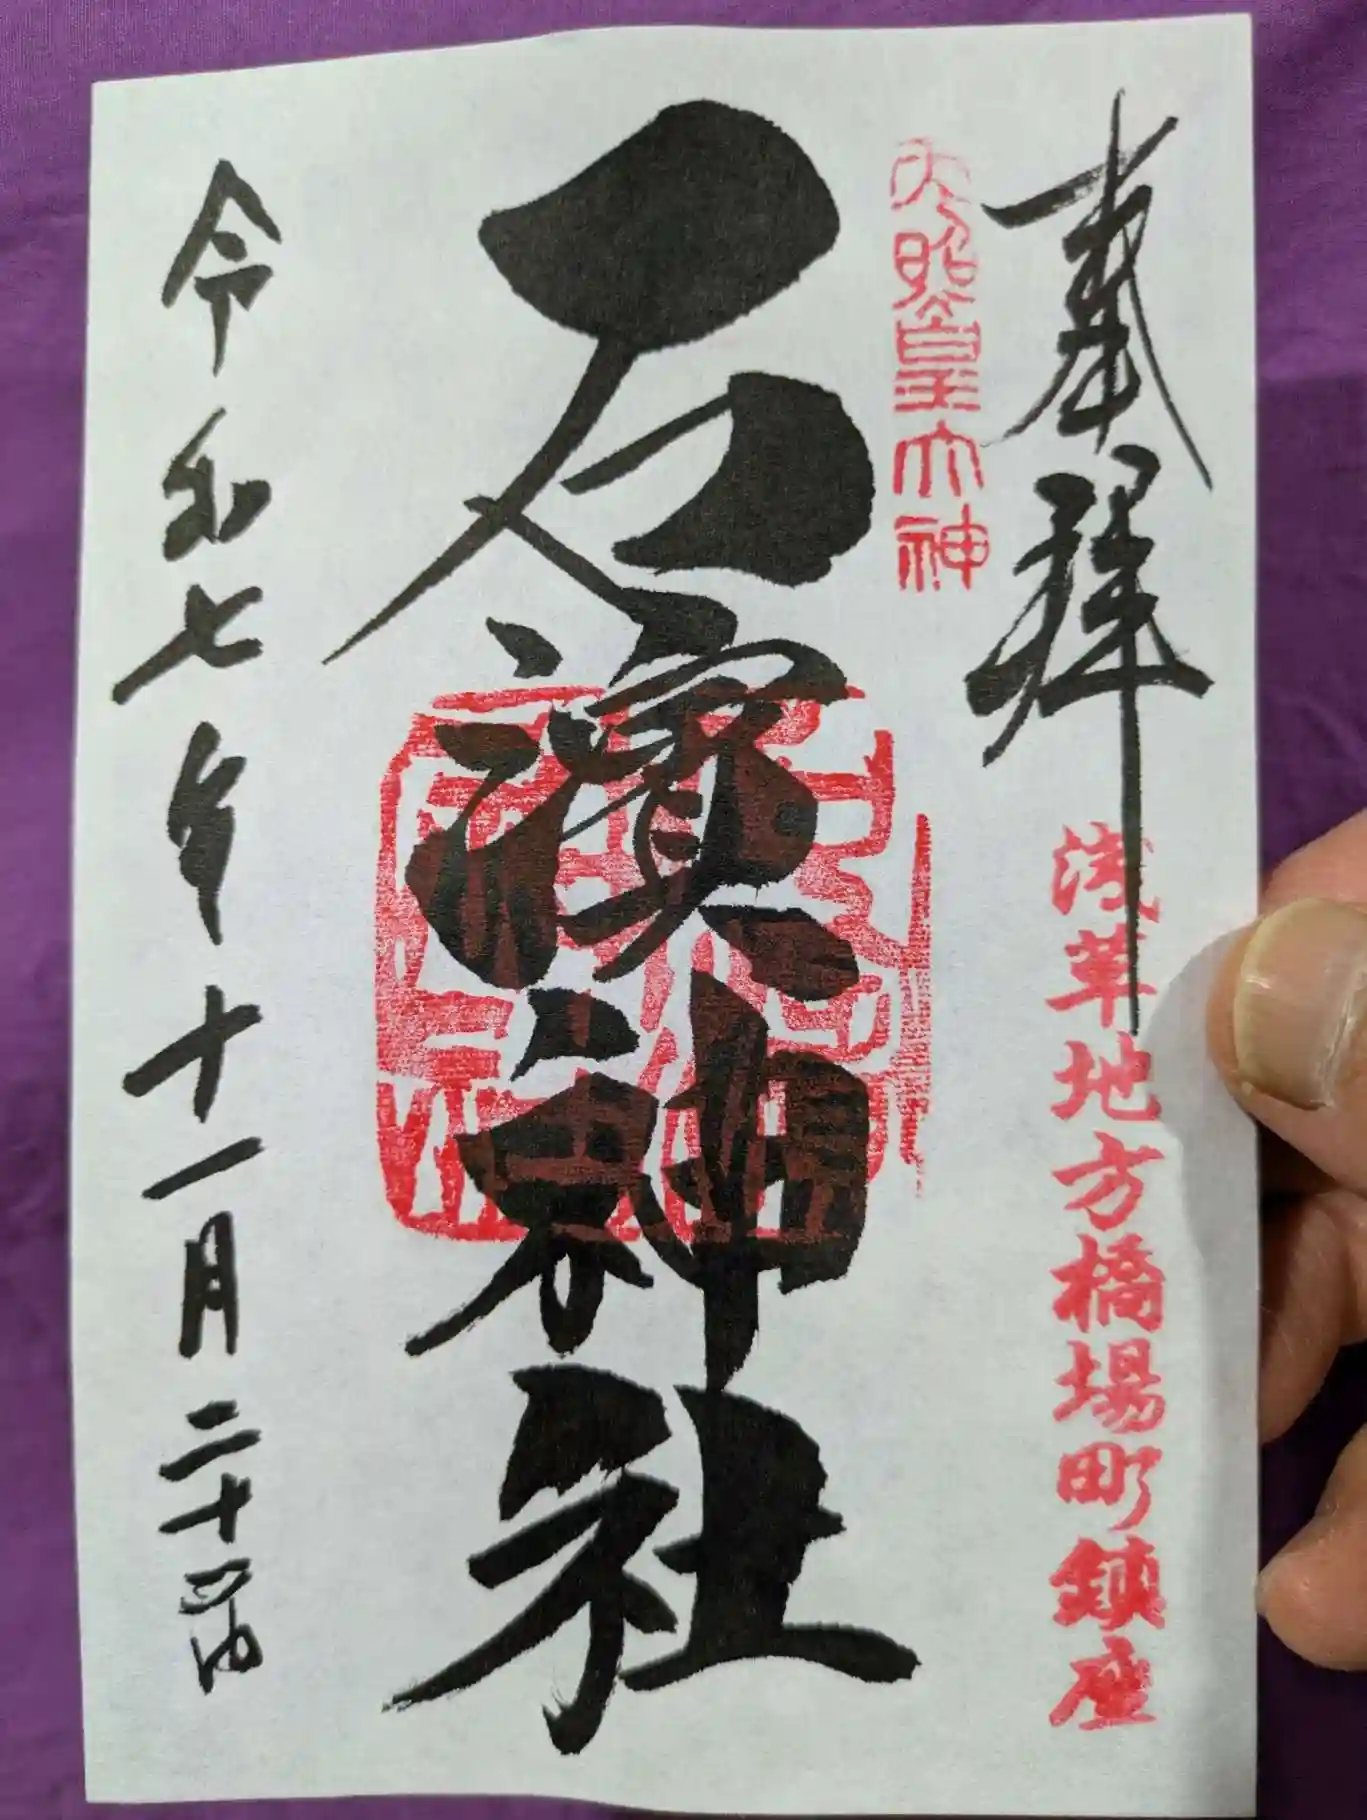 奉拝
浅草地方橋場町鎮座
天照皇大神
石濱神社
令和七年十一月二十四日